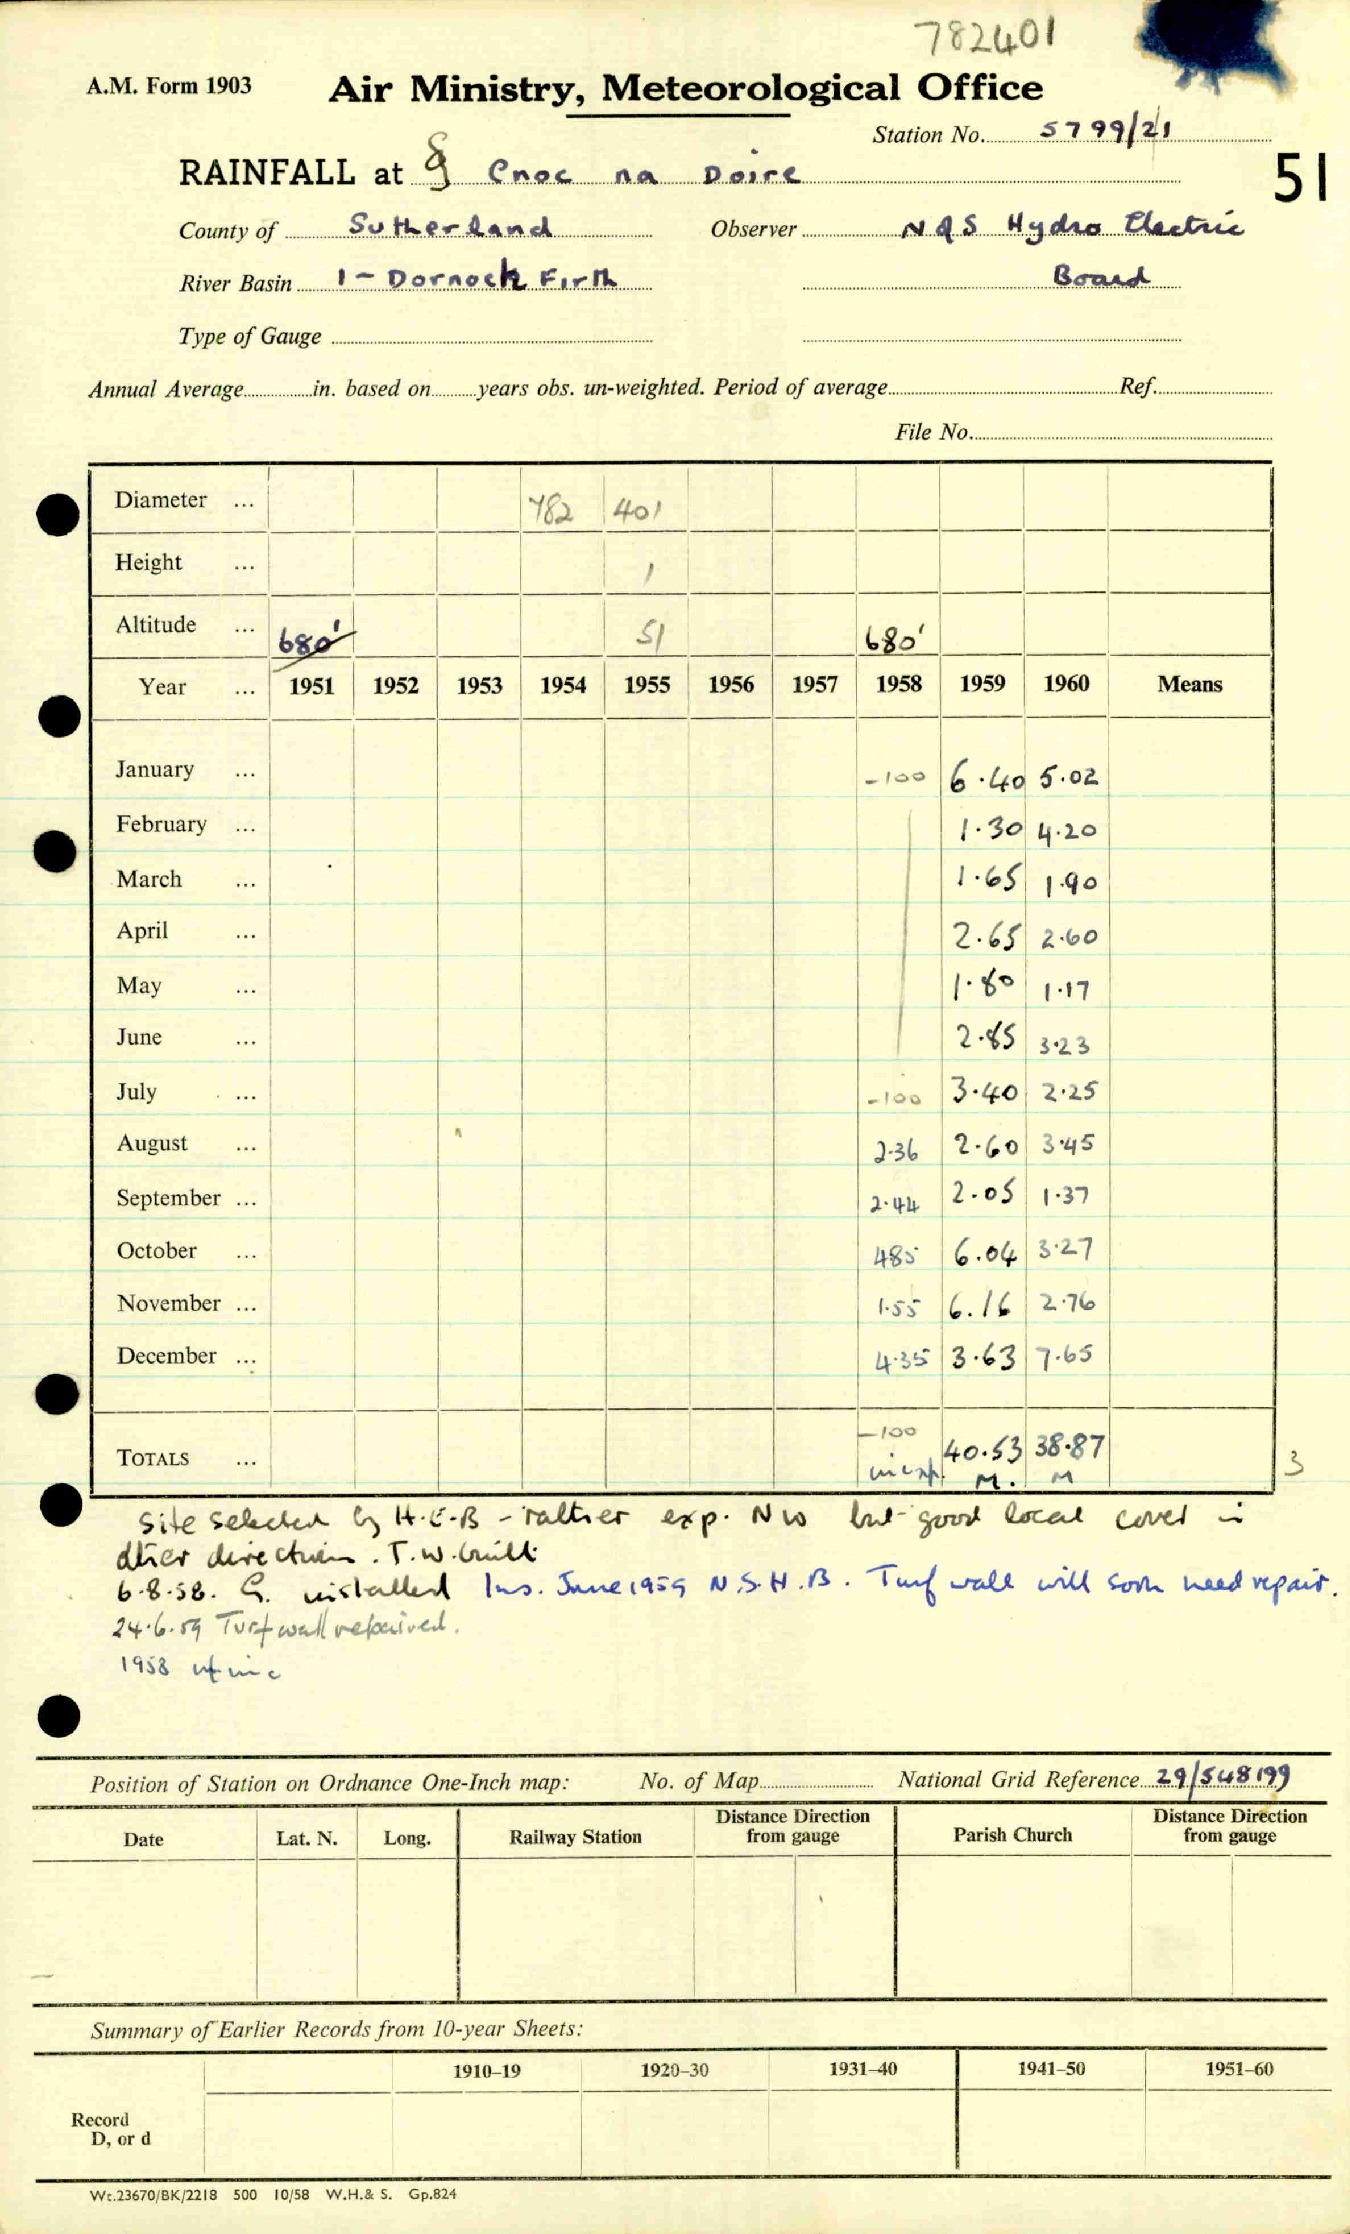 782401
A.M. Form 1903 Air Ministry, Meteorological Office
Station No. 5799/21
RAINFALL at Cnoc na Doire 51
County of Sutherland Observer N of S Hydro Electric
River Basin 1 - Dornock Firth Board
Type of Gauge
Annual Average in. based on years obs. un-weighted. Period of average Ref.
File No.
Diameter ... 782 401
Height ... 1
Altitude ... 680' 51 680'
Year ... 1951 1952 1953 1954 1955 1956 1957 1958 1959 1960 Means
January ... -100 6.40 5.02
February ... 1.30 4.20
March ... 1.65 1.90
April ... 2.65 2.60
May ... 1.80 1.17
June ... 2.85 3.23
July ... -100 3.40 2.25
August ... 2.36 2.60 3.45
September ... 2.44 2.05 1.37
October ... 485 6.04 3.27
November ... 1.55 6.16 2.76
December ... 4.35 3.63 7.65
-100
TOTALS ... 40.53 38.87 3
M. M
Site selected by H.E.B - rather exp. NW but good local cover in
other direction. T.W.
6.8.58. G. installed Ins. June 1959 N.S.H.B. Turf wall will soon need repair.
24.6.59 Turf wall repaired.
1958
Position of Station on Ordnance One-Inch map: No. of Map National Grid Reference 29/548199
Date Lat. N. Long. Railway Station Distance Direction from gauge Parish Church Distance Direction from gauge
Summary of Earlier Records from 10-year Sheets:
1910–19 1920–30 1931–40 1941–50 1951–60
Record
D, or d
Wt.23670/BK/2218 500 10/58 W.H.& S. Gp.824